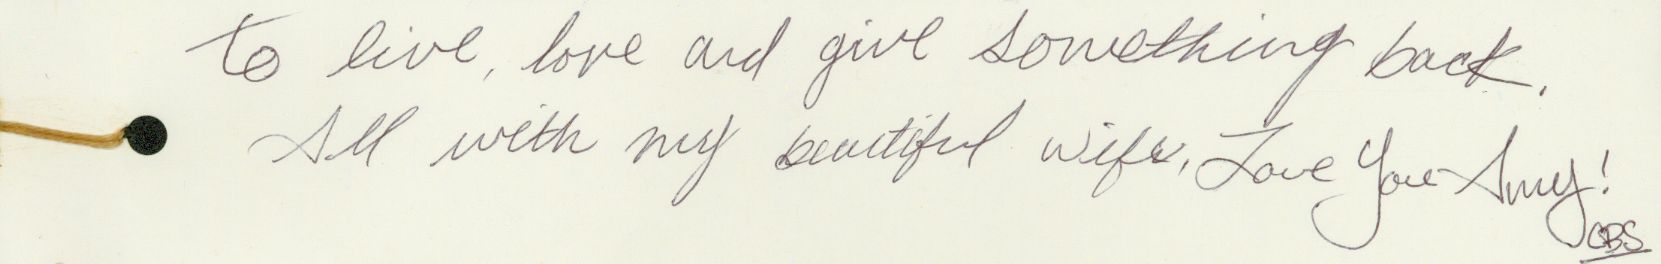 to live, love and give something back.
All with my beautiful wife. Love You Amy!
CBS